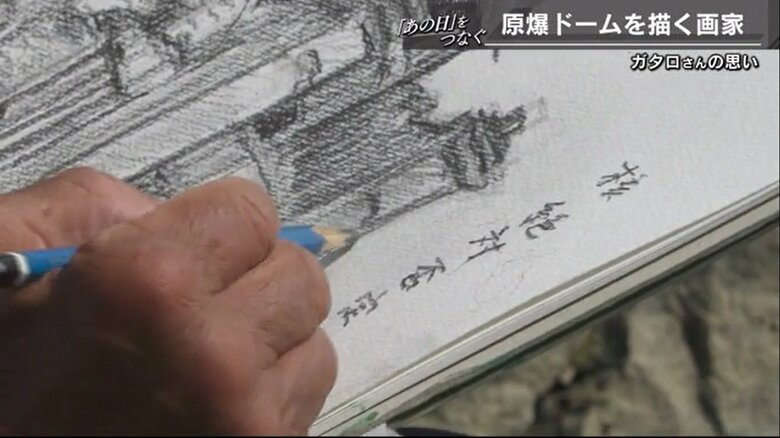 「あの日」を
つなぐ
原爆ドームを描く画家
ガタロさんの思い